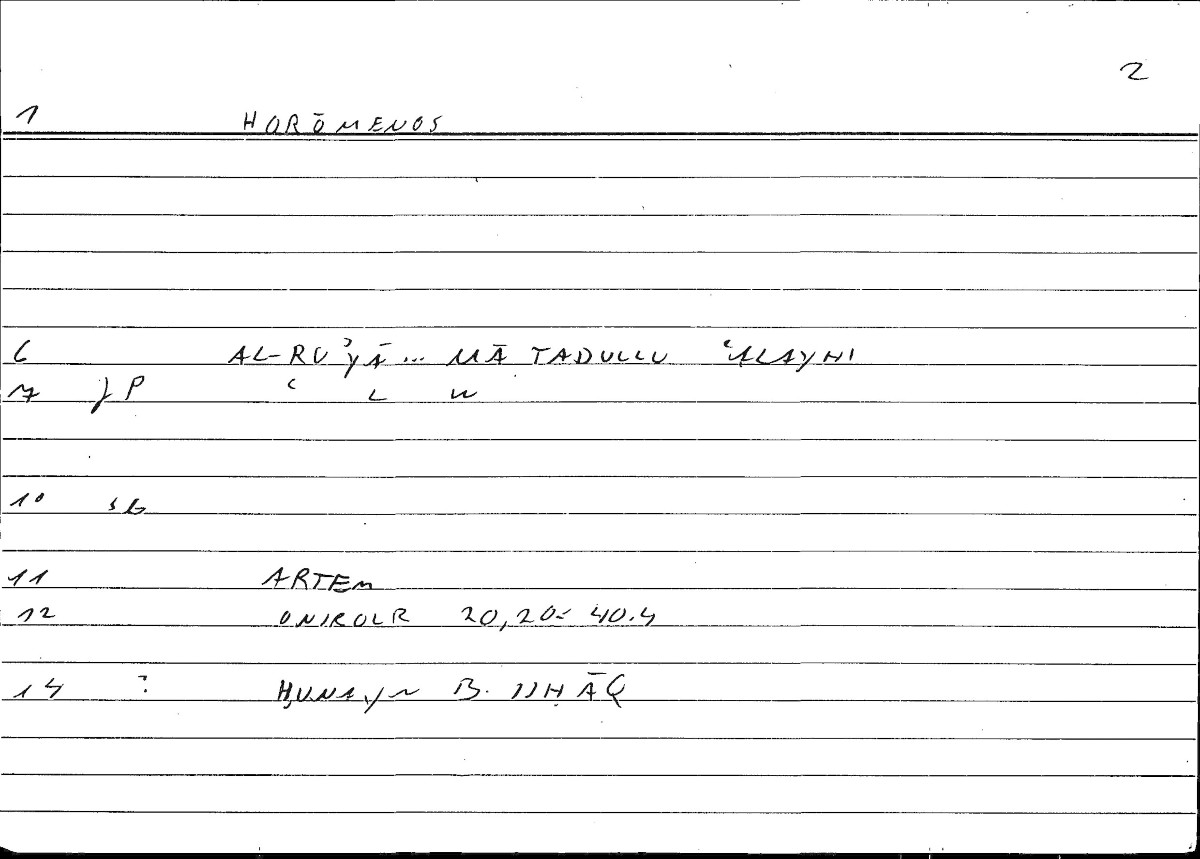 2
1 HORŌMENOS
6 AL-RUʾYĀ... MĀ TADULLU ʿALAYHI
7 JP ʿ L W
10 SG
11 ARTEM
12 ONIROCR 20,20= 40.4
14 ? ḤUNAYN B. ISḤĀQ